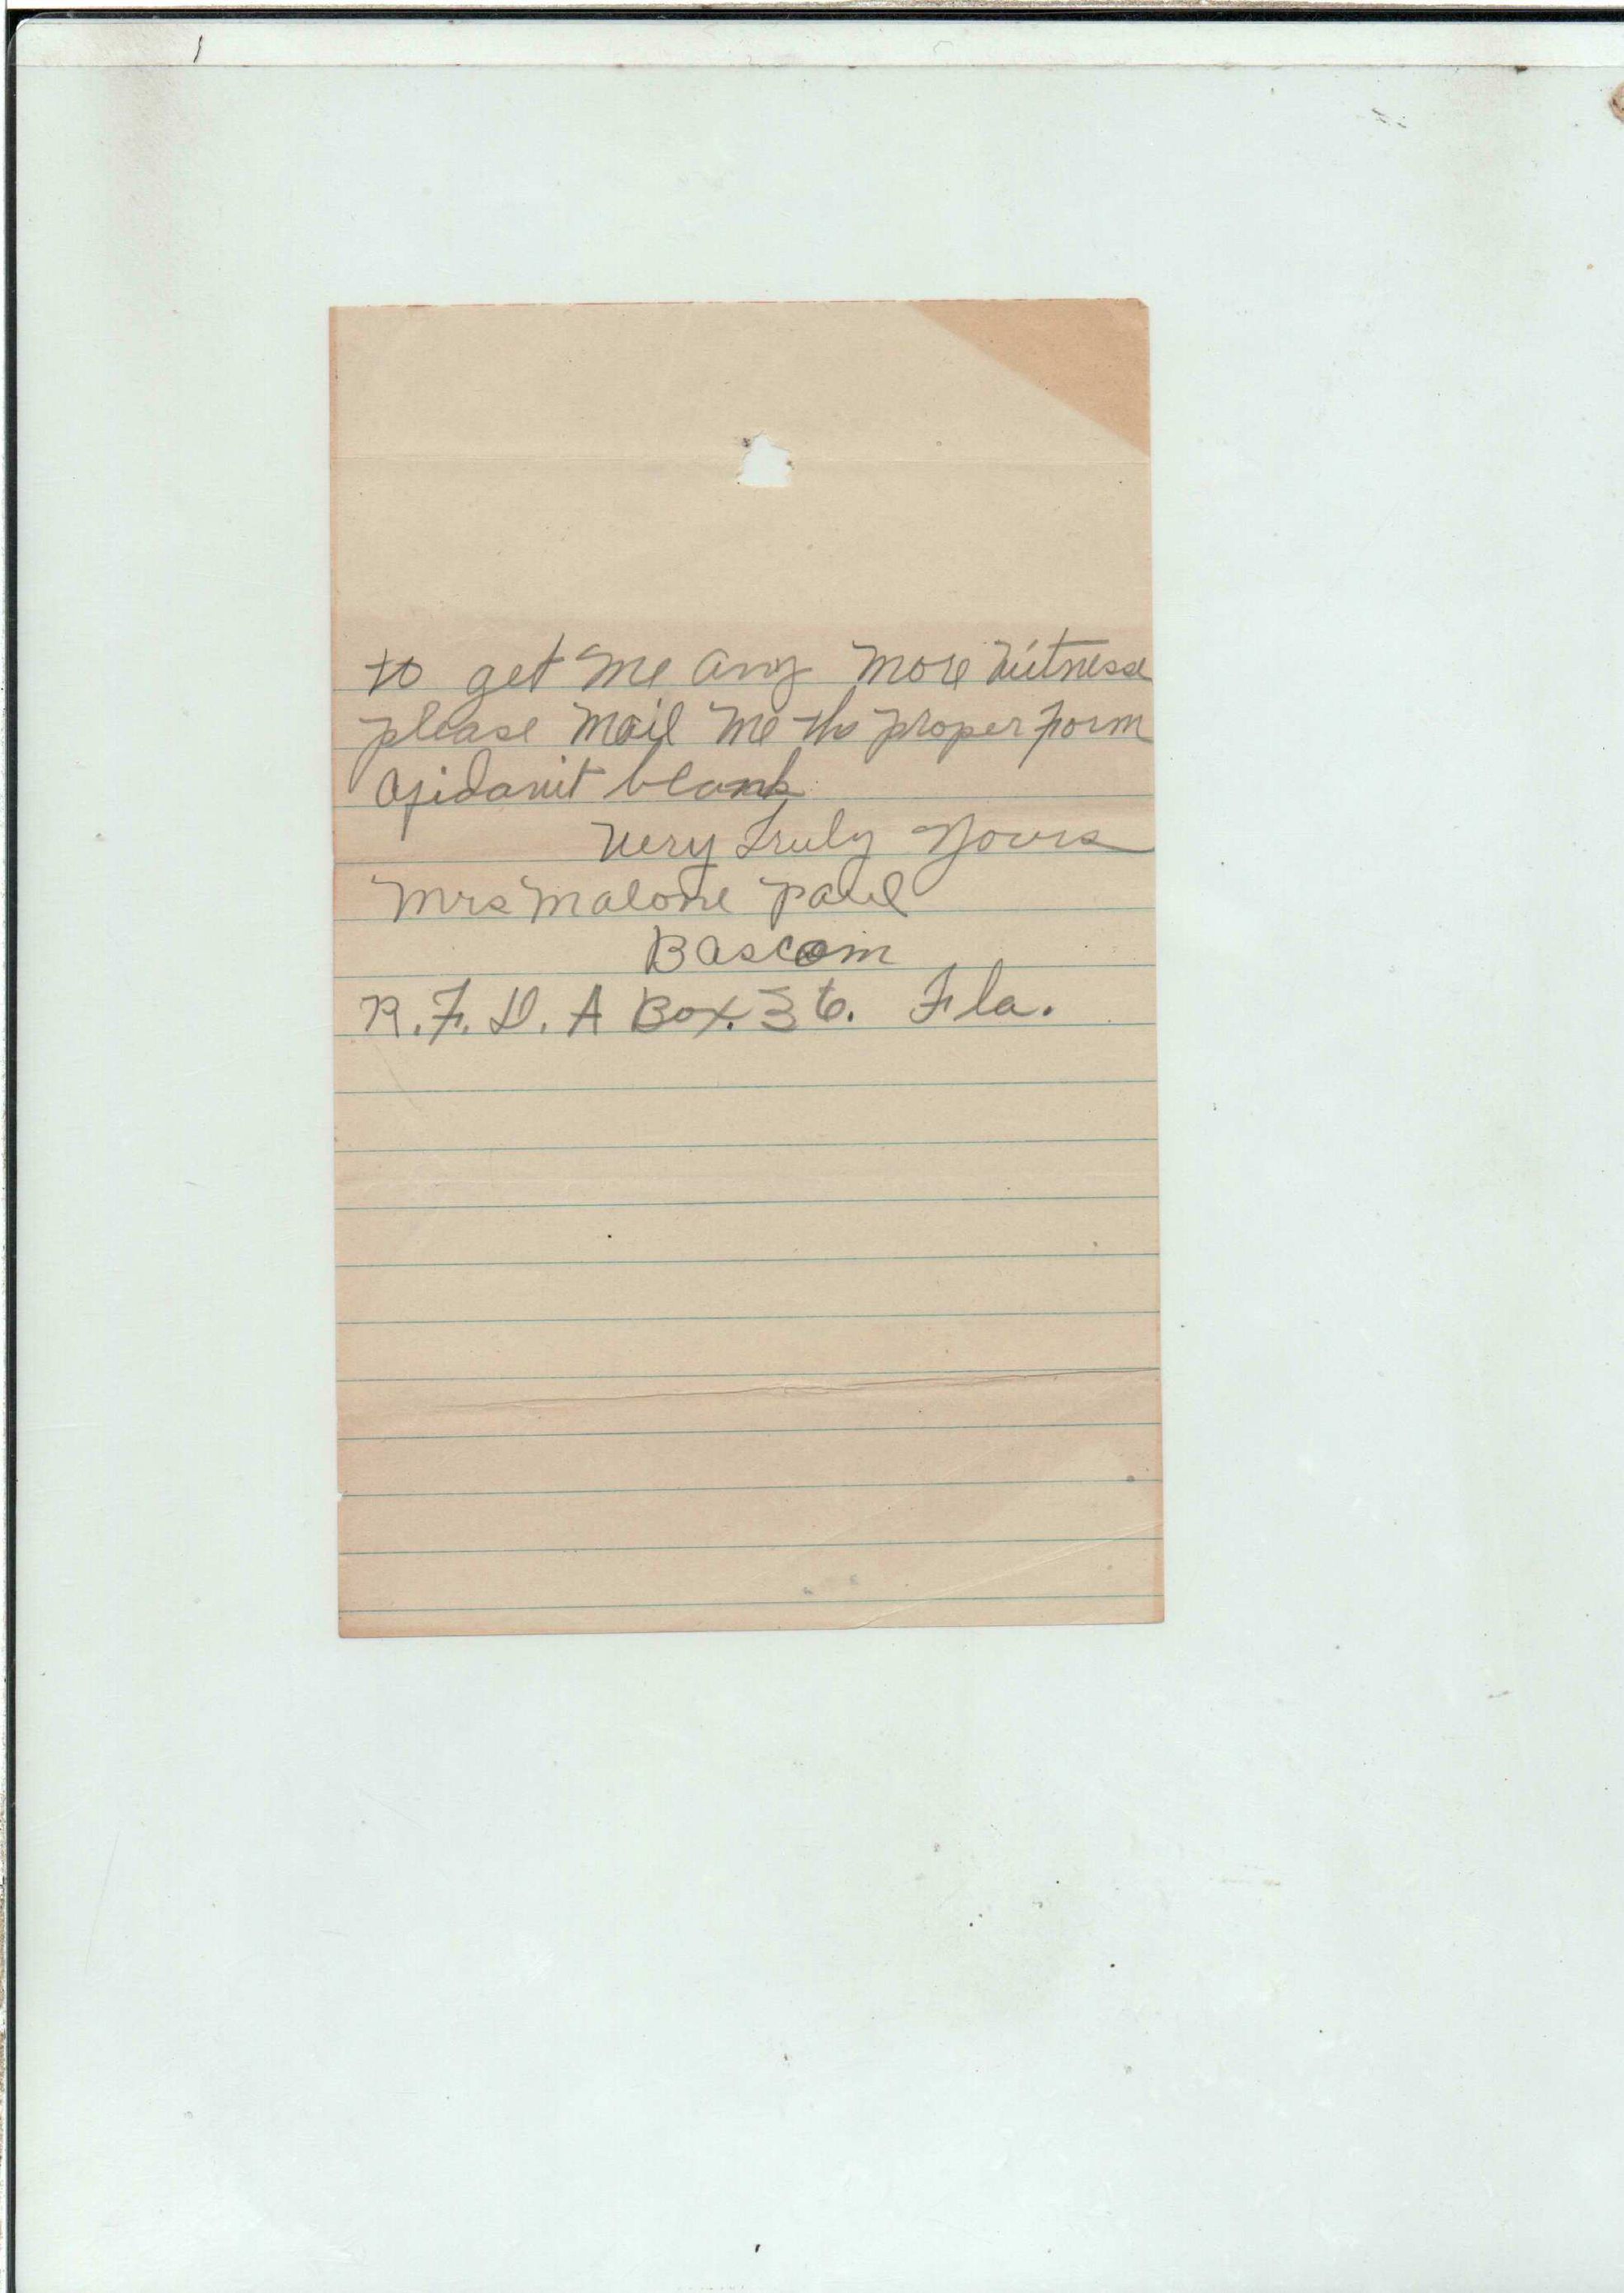 to get me any more witnesse
please mail me the proper form
afidavit blank
very truly yours
mrs malone paul
Bascom
R.F.D. A Box. 36. Fla.